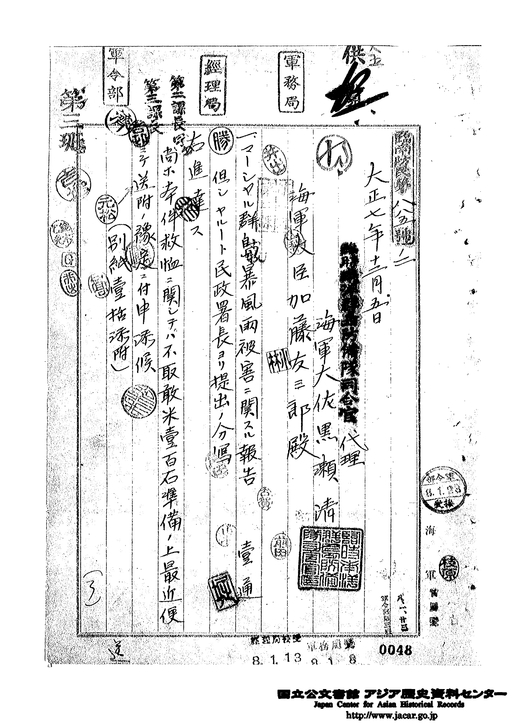 供
軍務局
經理局
軍令部
第三班
第二課長
第三課長
臨南防第八五號ノ二
大正七年十二月五日
臨時南洋群島防備隊司令官代理
海軍大佐黒瀬清
海軍大臣加藤友三郎殿
一、マーシャル群島暴風雨被害ニ関スル報告 壹通
但シヤルート民政署長ヨリ提出ノ分寫
右進達ス
尚ホ本件救恤ニ関シテハ不取敢米壹百石準備ノ上最近便
ニテ送附ノ豫定ニ付申添候
(別紙壹括添附)
軍令部
8.1.28
接受
海軍
軍務局接受
8.1.13
8.1.8
0048
国立公文書館 アジア歴史資料センター
Japan Center for Asian Historical Records
http://www.jacar.go.jp